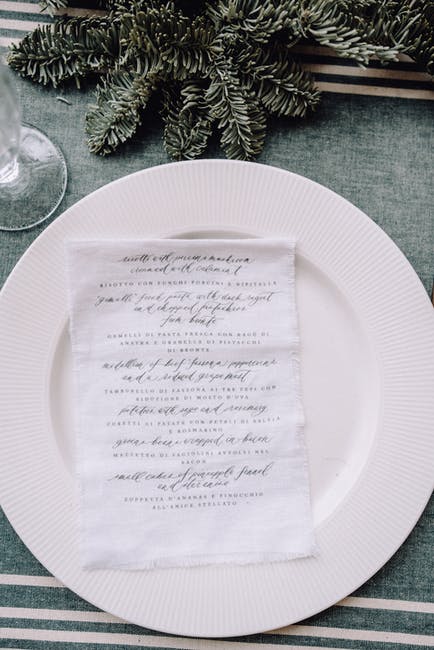 risotto with porcini mushroom
creamed with calamint
RISOTTO CON FUNGHI PORCINI E NIPITELLA
"gemelli" fresh pasta with duck ragout
and chopped pistachios
from bronte
GEMELLI DI PASTA FRESCA CON RAGÙ DI
ANATRA E GRANELLA DI PISTACCHI
DI BRONTE
medallion of beef fassona peppercorns
and a reduced grape must
TAMBURELLO DI FASSONA AI TRE PEPI CON
RIDUZIONE DI MOSTO D'UVA
potatoes with sage and rosemary
DI PATATA CON PETALI DI SALVIA
E ROSMARINO
green beans wrapped in bacon
MAZZETTO DI FAGIOLINI AVVOLTI NEL
BACON
small cubes of pineapple fennel
and
ZUPPETTA D'ANANAS E FINOCCHIO
ALL'ANICE STELLATO